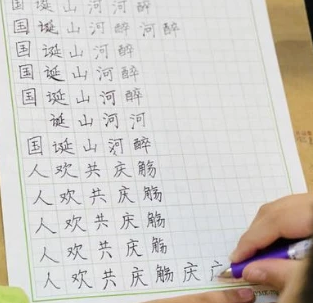 国诞山河河醉
国诞山河醉河醉
国诞山河醉
国诞山河醉
国诞山河醉
诞山河河
国诞山河醉
人欢共庆觞
人欢共庆觞
人欢共庆觞
人欢共庆觞
人欢共庆觞庆